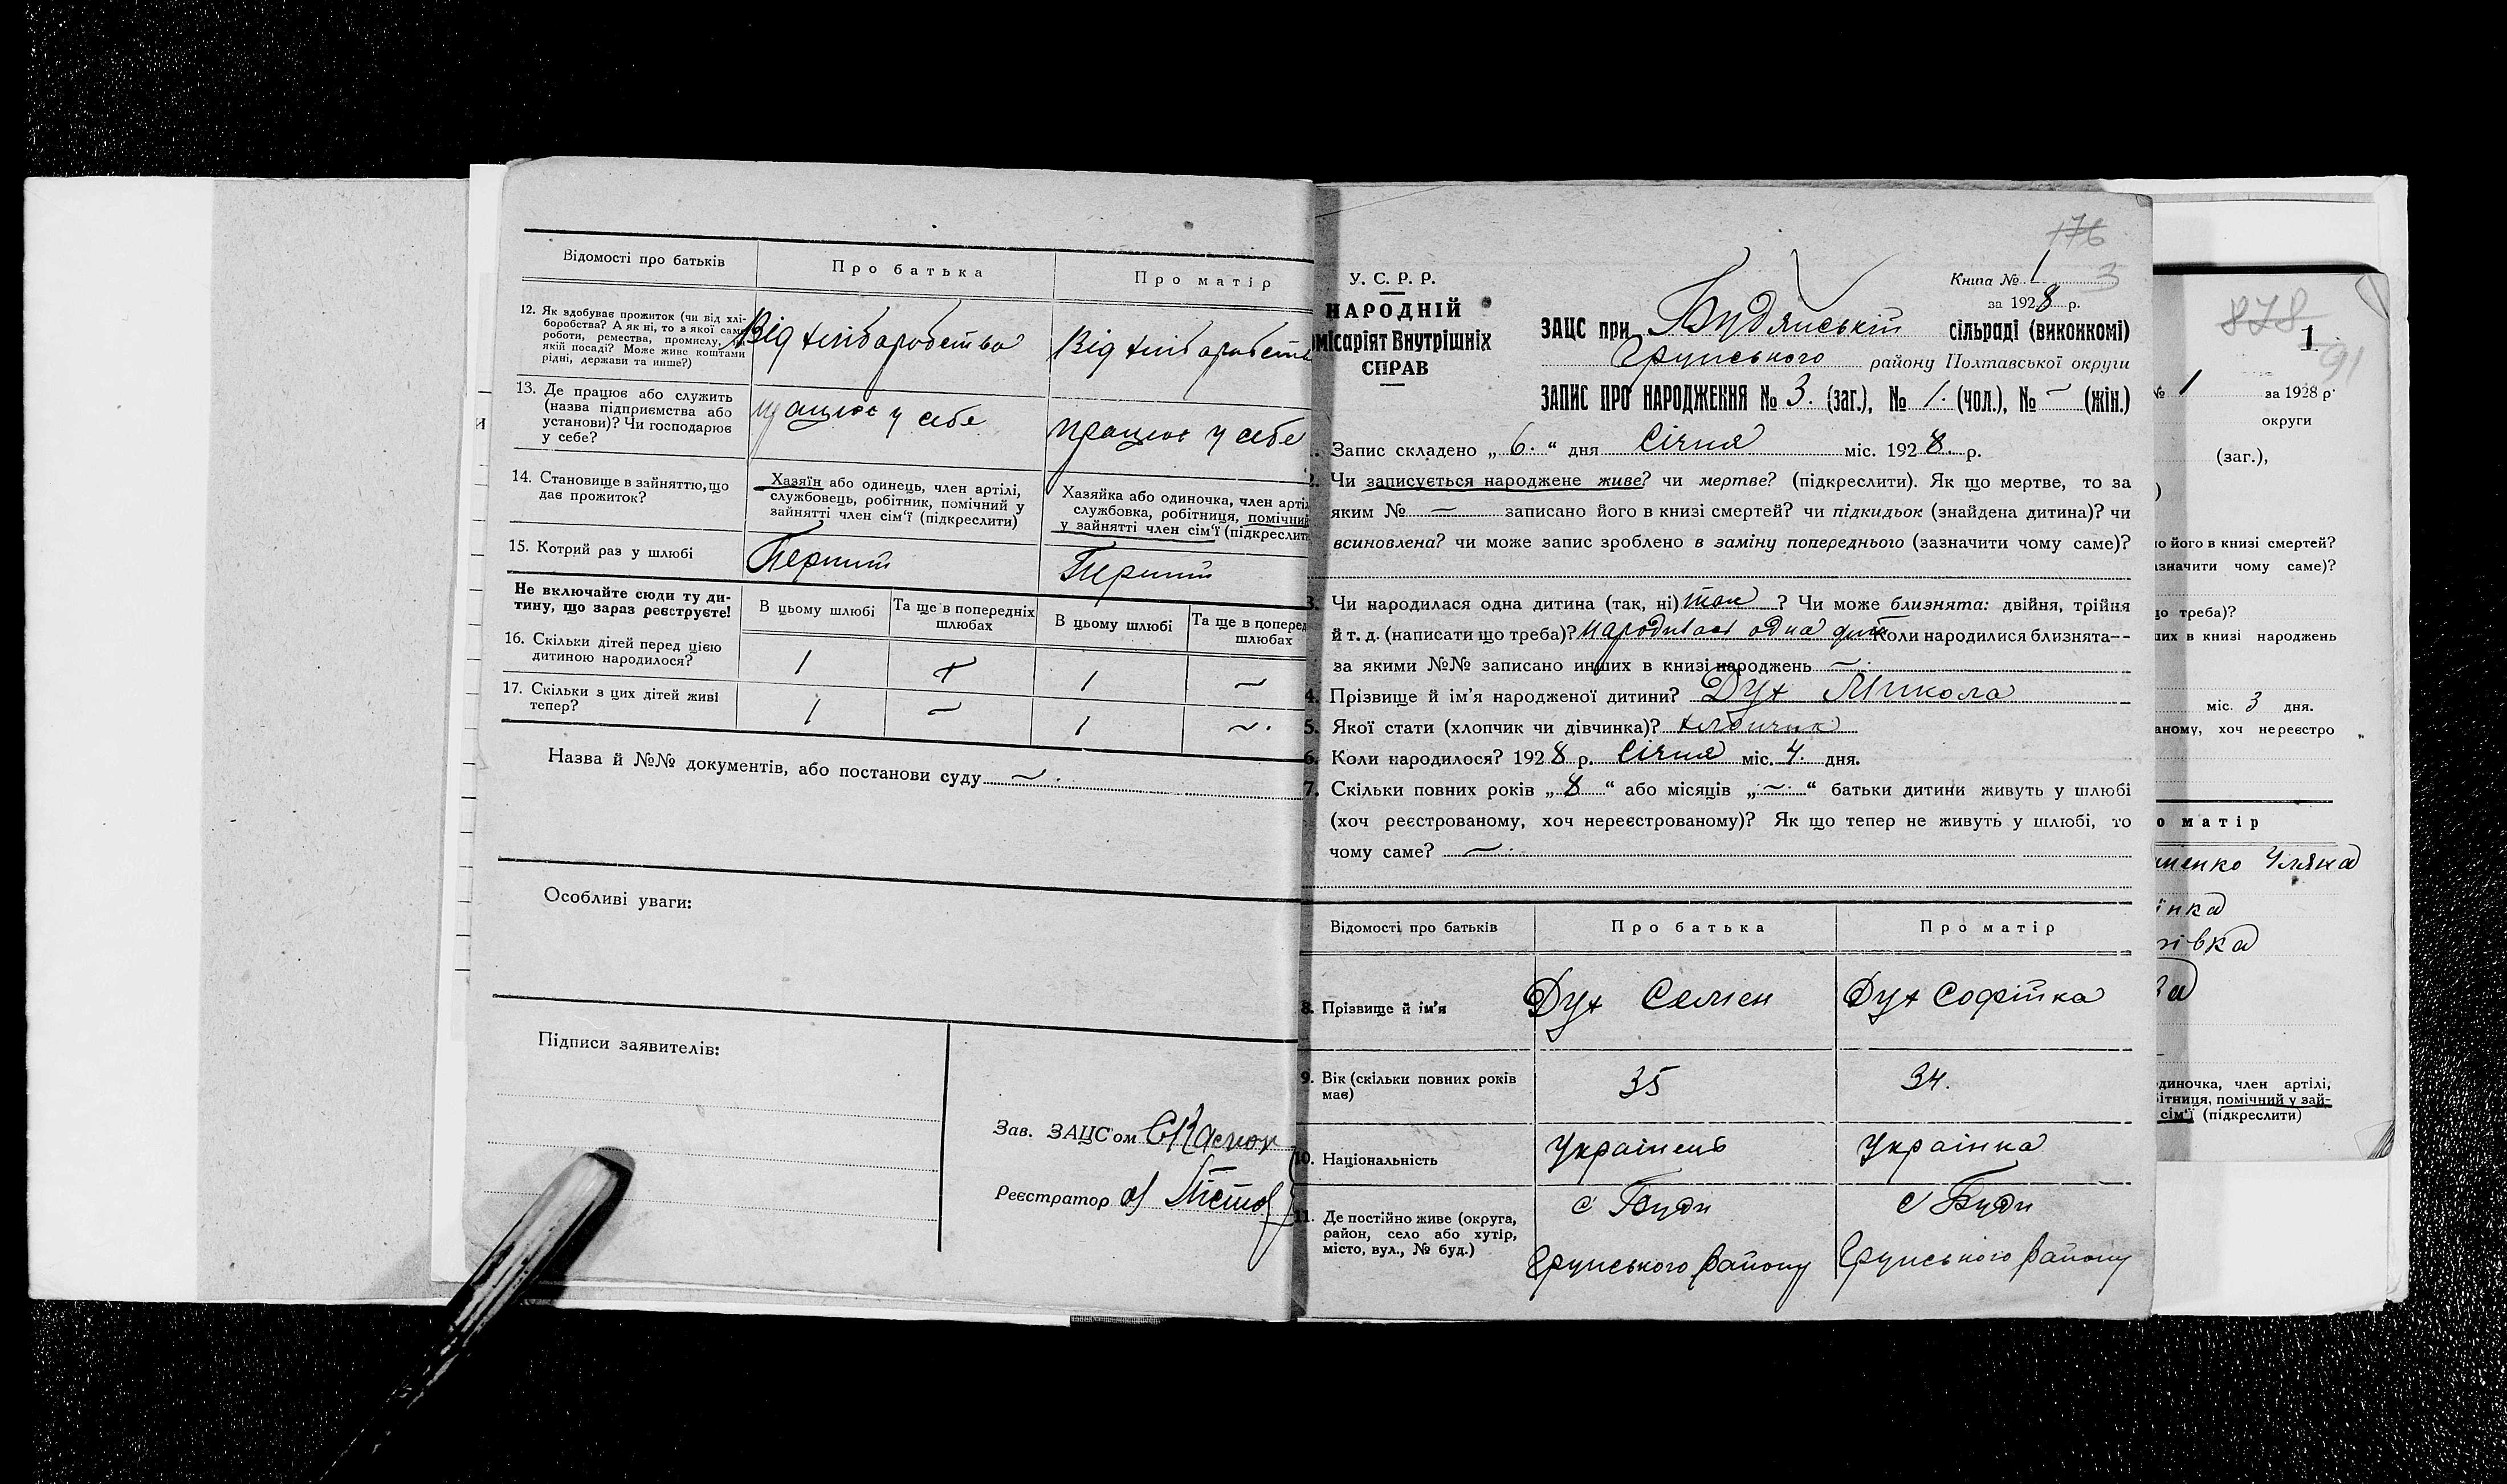 Відомості про батьків
Про батька
Про матір
12. Як здобуває прожиток (чи від хлі-
боробства? А як ні, то з якої саме
роботи, ремества, промислу, на
якій посаді? Може живе коштами
рідні, держави та инше?)
Від хліборобства
Від хліборобств
13. Де працює або служить
(назва підприємства або
установи)? Чи господарює
у себе?
працює у себе
працює у себе
14. Становище в зайняттю, що
дає прожиток?
Хазяїн або одинець, член артілі,
службовець, робітник, помічний у
зайнятті член сім'ї (підкреслити)
Хазяйка або одиночка, член артіл
службовка, робітниця, помічний
у зайнятті член сім'ї (підкреслит
15. Котрий раз у шлюбі
Перший
Перший
Не включайте сюди ту ди-
тину, що зараз реєструєте!
В цьому шлюбі
Та ще в попередніх
шлюбах
В цьому шлюбі
Та ще в поперед
шлюбах
16. Скільки дітей перед цією
дитиною народилося?
1
1
~
17. Скільки з цих дітей живі
тепер?
1
~
1
~.
Назва й №№ документів, або постанови суду ~.
Особливі уваги:
Підписи заявителів:
Зав. ЗАЦС'ом
Реєстратор
176
У. С. Р. Р.
НАРОДНІЙ
омісаріят Внутрішніх
СПРАВ
Книга № 1 3
за 1928 р.
ЗАЦС при Будянській сільраді (виконкомі)
Грунського району Полтавської округи
ЗАПИС ПРО НАРОДЖЕННЯ № 3. (заг.), № 1. (чол.), № ~ (жін.)
1. Запис складено „6.“ дня Січня міс. 1928. р.
2. Чи записується народжене живе? чи мертве? (підкреслити). Як що мертве, то за
яким № ~ записано його в книзі смертей? чи підкидьок (знайдена дитина)? чи
всиновлена? чи може запис зроблено в заміну попереднього (зазначити чому саме)?
3. Чи народилася одна дитина (так, ні) так? Чи може близнята: двійня, трійня
й т. д. (написати що треба)? народилась одна дит Коли народилися близнята--
за якими №№ записано инших в книзі народжень ~.
4. Прізвище й ім'я народженої дитини? Дух Микола
5. Якої стати (хлопчик чи дівчинка)? хлопчик
6. Коли народилося? 1928 р. Січня міс. 4. дня.
7. Скільки повних років „8“ або місяців „~“ батьки дитини живуть у шлюбі
(хоч реєстрованому, хоч нереєстрованому)? Як що тепер не живуть у шлюбі, то
чому саме? ~.
Відомості про батьків
Про батька
Про матір
8. Прізвище й ім'я
Дух Семен
Дух Софійка
9. Вік (скільки повних років
має)
35
34.
10. Національність
Українець
Українка
11. Де постійно живе (округа,
район, село або хутір,
місто, вул., № буд.)
с Буди
Грунського району
с Буди
Грунського району
878
1
91
№ 1 за 1928 р.
округи
(заг.),
)
о його в книзі смертей?
азначити чому саме)?
що треба)?
ших в книзі народжень
міс. 3 дня.
аному, хоч нереєстро
о матір
менко Уляна
їнка
одиночка, член артілі,
бітниця, помічний у зай-
сім'ї (підкреслити)